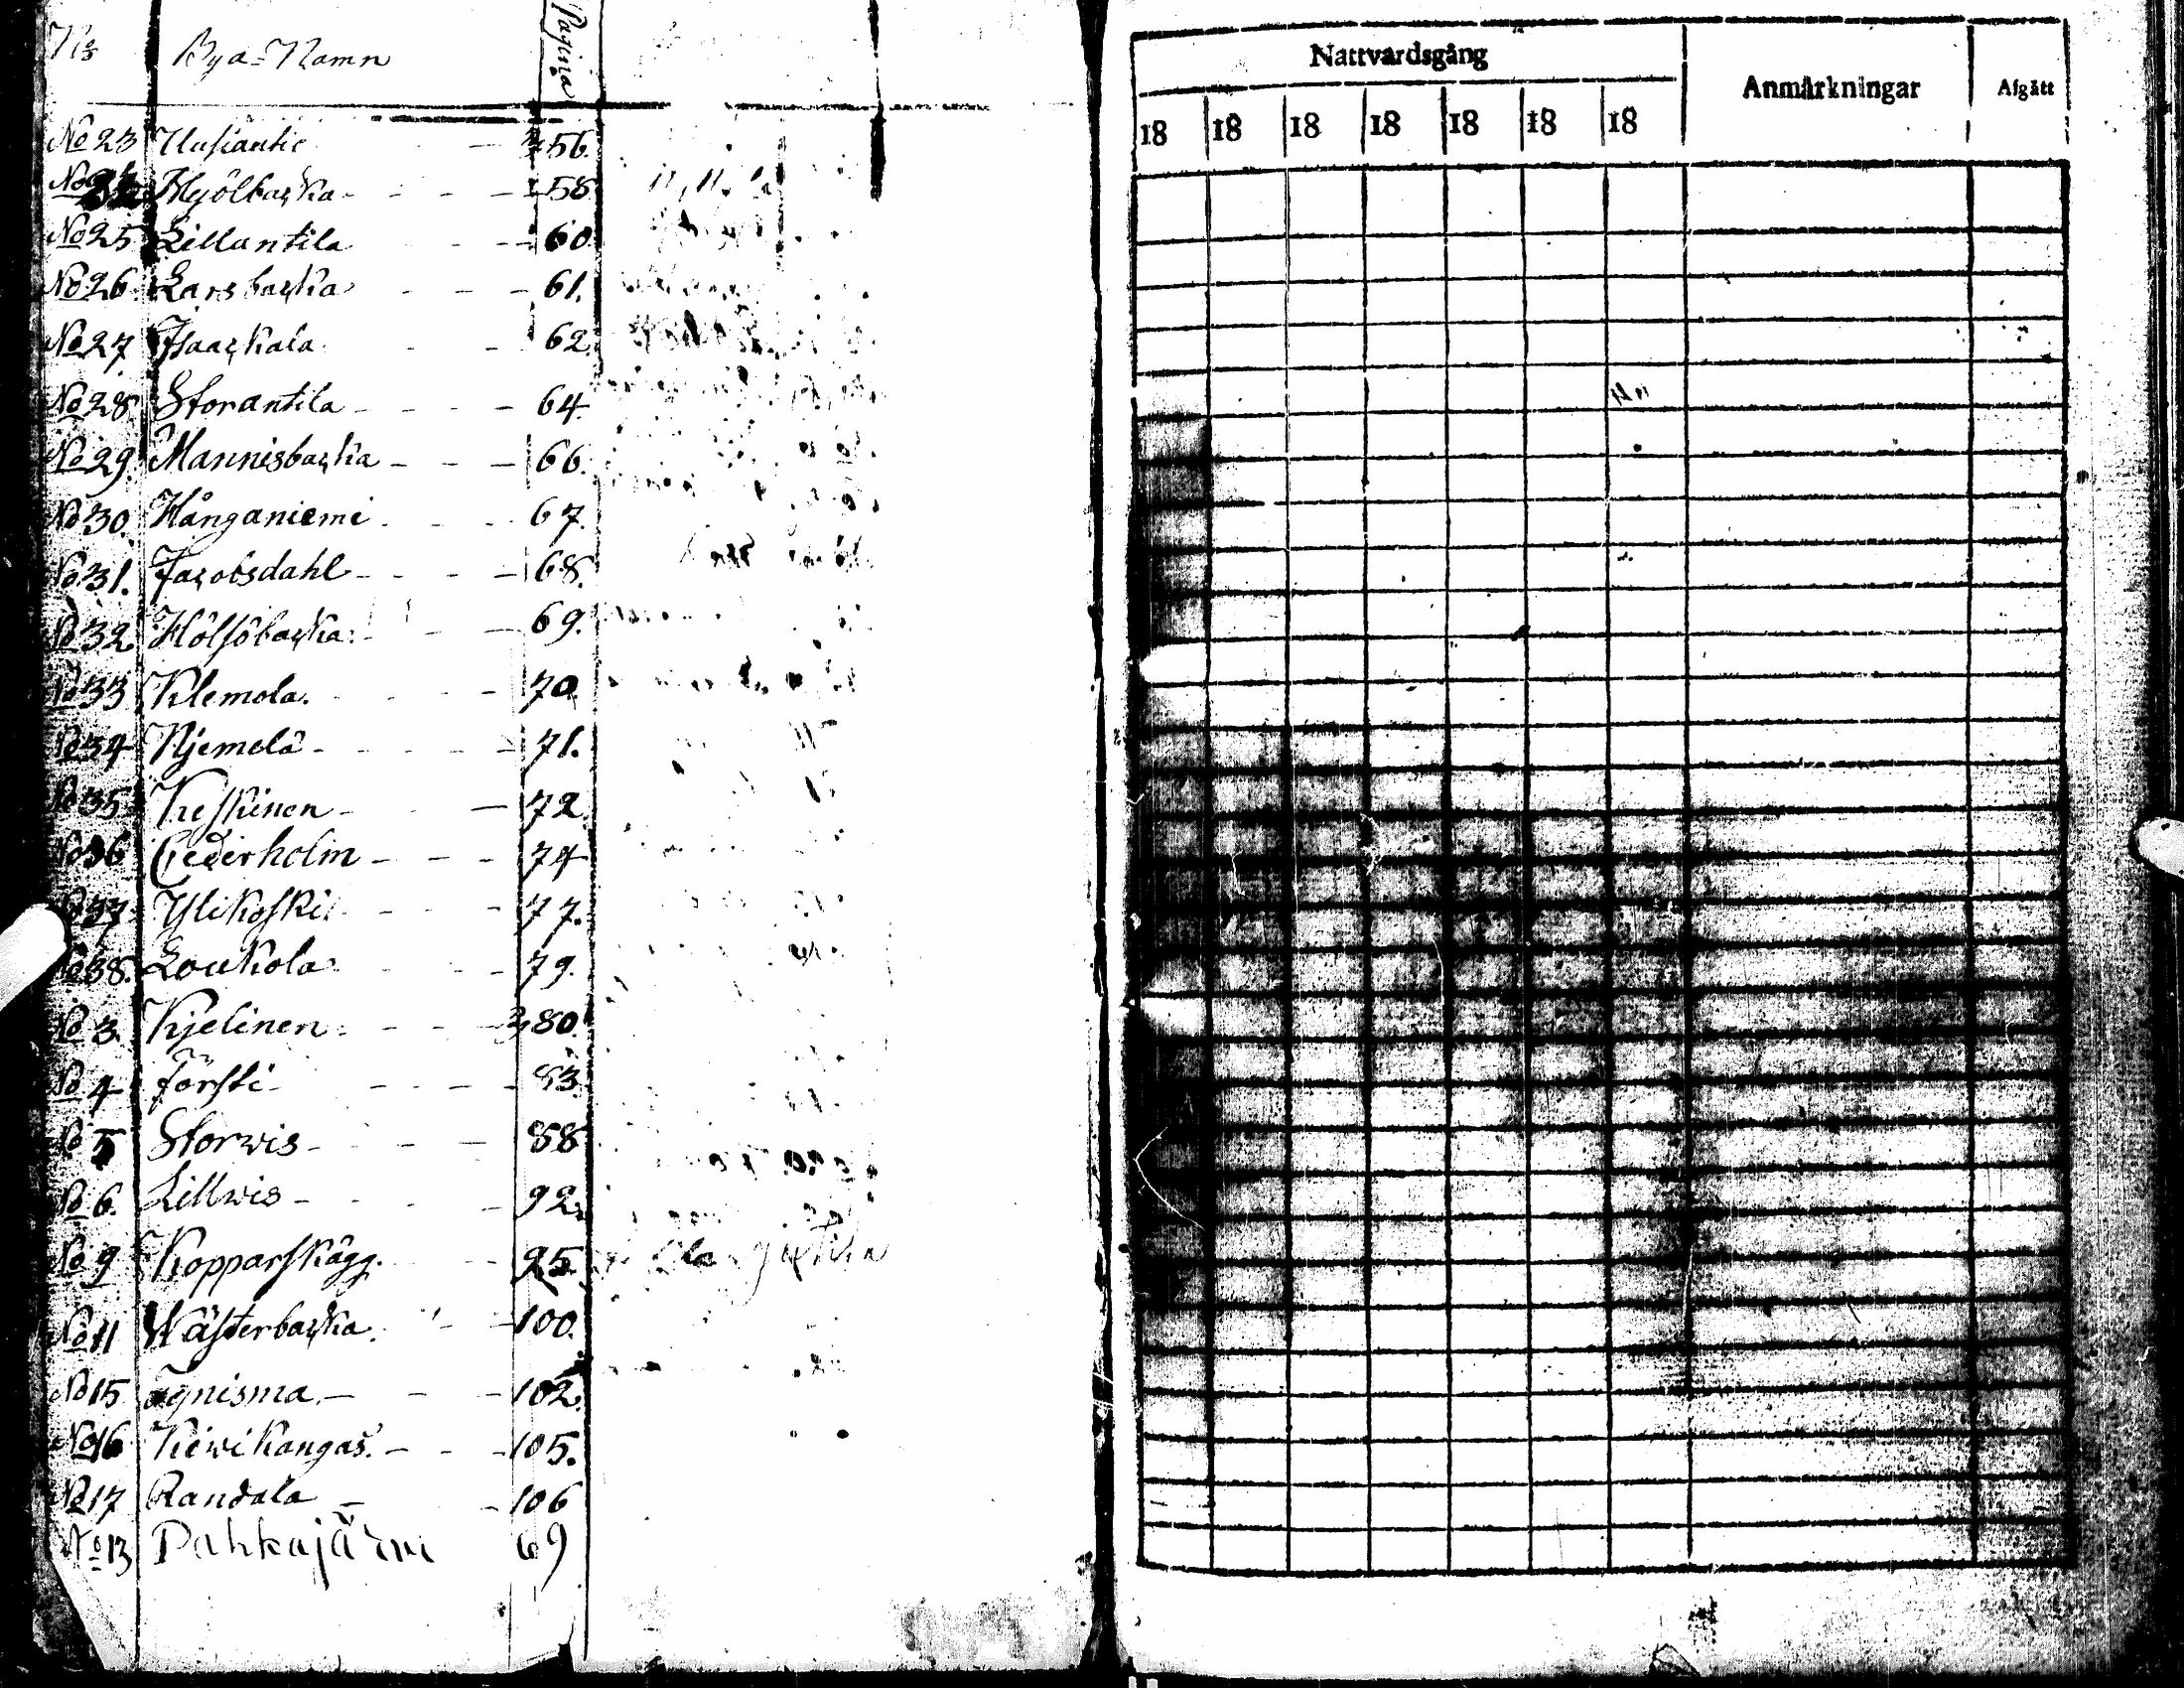 No Bya=Namn Pagina
No 23 Uusiantti - 56.
No 24 Mjölbacka - - - - 58.
No 25 Lillantila - - - 60.
No 26 Larsbacka - - - 61.
No 27 Isaackala - - 62.
No 28 Storantila - - - - 64.
No 29. Mannisbacka - - - 66.
No 30. Hånganiemi - - - 67.
No 31. Jacobsdahl - - - - 68.
No 32 Hölsöbacka - - 69.
No 33 Klemola. - - - 70
No 34 Njemelä - - - - 71.
No 35 Keskinen - - - 72
No 36 Cederholm - - - 74
No 37 Ylikoski - - - - 77.
No 38. Loukola - - - 79.
No 3. Kjelinen - - - - 380.
No 4 Försti - - - - 83.
No 5 Storwis - - - - 88
No 6. Lillwis - - - - 92.
No 9 Kopparskägg. - - 95
No 11 Wästerbacka. - - 100.
No 15 Ignisma. - - - 102.
No 16 Kiwikangas. - - - 105.
No 17 Randala - - 106
No 13 Pahkajärvi 69
Nattvardsgång Anmärkningar Afgått
18 18 18 18 18 18 18